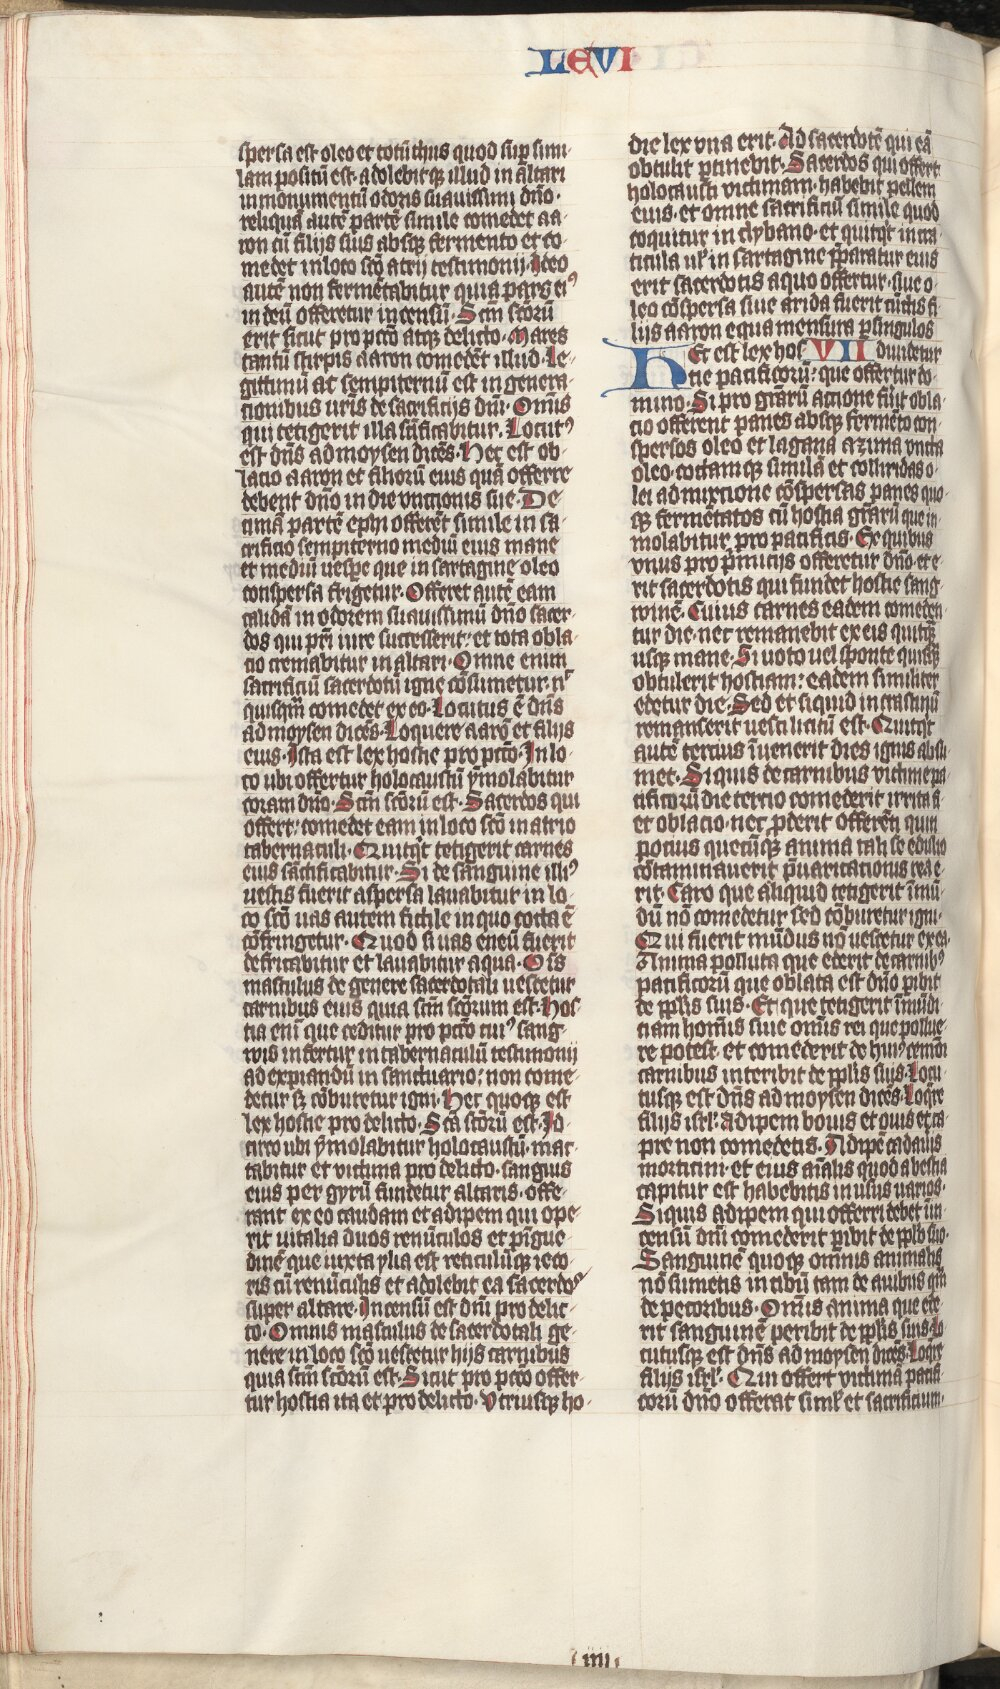 LEVI
spersa est oleo et totū thus quod sup̄ simi-
lam positū est. adolebitqꝫ illud in altari
in monumentū odoris suauissimi dn̄o.
reliquā autē partē simile comedet aa-
ron cū filijs suis absqꝫ fermento et co-
medet in loco sc̄o atrij testimonij. Ideo
autē non fermētabitur quia pars eiꝰ
in dei offeretur incensū. Scm̄ sc̄orū
erit sicut pro pctō atqꝫ delicto. Mares
tantū stirpis aaron comedēt illud. Le-
gittimū ac sempiternū est in genera-
tionibus vr̄is de sacrificijs dn̄i. Omīs
qui tetigerit illa sc̄ificabitur. Locutꝰ
est dn̄s ad moysen dicēs. Hec est ob-
lacio aaron et filiorū eius quā offerre
debent dn̄o in die vnctionis sue. De-
cimā partē ephi offerēt simile in sa-
crificio sempiterno mediū eius mane
et mediū uesꝑe que in sartagine oleo
conspersa frigetur. Offeret autē eam
calidā in odorem suauissimū dn̄o sacer-
dos qui pr̄i iure successerit. et tota obla-
cio cremabitur in altari. Omne enim
sacrificiū sacerdotū igne cōsumetur. n̄
quisqm̄ comedet ex eo. Locutus ē dn̄s
ad moysen dicēs. Loquere aarō et filijs
eius. Ista est lex hostie pro pctō. In lo-
co ubi offertur holocaustū ymolabitur
coram dn̄o. Scm̄ sc̄orū est. Sacerdos qui
offert. comedet eam in loco sc̄o in atrio
tabernaculi. Quitqt̄ tetigerit carnes
eius sāctificabitur. Si de sanguine illiꝰ
uestis fuerit aspersa lauabitur in lo-
co sc̄o uas autem fictile in quo cocta ē
cōfringetur. Quod si uas eneū fuerit
defricabitur et lauabitur aqua. Oīs
masculus de genere sacerdotali uescetur
carnibus eius quia scm̄ sc̄orum est. Hos-
tia eni que ceditur pro pctō cuiꝰ sang-
wis infertur in tabernaculū testimonij
ad expiandū in sanctuario. non come-
detur sꝫ cōburetur igni. Hec quoqꝫ est
lex hostie pro delicto. Scā sc̄orū est. Id-
circo ubi ymolabitur holocaustū. mac-
tabitur et victima pro delicto. sanguis
eius per gyrū fundetur altaris. offe-
rant ex eo caudam et adipem qui ope-
rit vitalia duos renūculos et pīgue-
dinē que iuxta ylia est reticulūqꝫ ieco-
ris cū renūculis et adolebit ea sacerdos
super altare. Incensū est dn̄i pro delic-
to. Omnis masculus de sacerdotali ge-
nere in loco sc̄o uescetur hijs carnibus
quia scm̄ sc̄orū est. Sicut pro pctō offer-
tur hostia ita et pro delicto. Vtriusqꝫ ho-
die lex vna erit. Ad sacerdotē qui eā
obtulit ꝑtinebit. Sacerdos qui offert
holocausti victimam. habebit pellem
eius. et omne sacrificiū simile quod
coquitur in clybano. et quitqt̄ in cra-
ticula ul̄ in sartagine p̄paratur eius
erit sacerdotis a quo offertur. siue o-
leo cōspersa siue arida fuerit cūctis fi-
lijs aaron equa mensura ꝑ singulos
Hec est lex hos VII diuidetur
tie pacificorū. que offertur do-
mino. Si pro grārū actione fūit obla-
cio offerent panes absqꝫ fermēto con-
spersos oleo et lagana azima vncta
oleo. coctamqꝫ similā et colliridas o-
lei admixtione cōspersas panes quo-
qꝫ fermētatos cū hostia grārū que im-
molabitur pro pacificis. Ex quibus
vnus pro p̄micijs offeretur dn̄o. et e-
rit sacerdotis qui fundet hostie sang-
winē. Cuius carnes eadem comeden-
tur die. nec remanebit ex eis quitqꝫ
usqꝫ mane. Si uoto uel sponte quisqꝫ
obtulerit hostiam: eadem similiter
edetur die. Sed et siquid in crastinū
remanserit uesci licitū est. Quitqt̄
autē tercius īuenerit dies ignis absu-
met. Si quis de carnibus victime pa-
cificorū die tercio comederit irrita fi
et oblacio. nec ꝓderit offerēti quin
pocius quecūqꝫ anima tali se edulio
cōtaminauerit p̄uaricationis rea e-
rit. Caro que aliquid tetigerit īmū-
dū nō comedetur sed cōburetur igni.
Qui fuerit mūdus nō uescetur ex ea.
Anima polluta que ederit de carnibꝰ
pacificorū que oblata est dn̄o ꝑibit
de pplīs suis. Et que tetigerit īmūdi-
ciam homīs siue omīs rei que pollue-
re potest. et comederit de huiꝰcemōi
carnibus interibit de pplīs suis. Locu-
tusqꝫ est dn̄s ad moysen dicēs. Loqre
filijs isrl̄. Adipem bouis et ouis et ca-
pre non comedetis. Adipē cadaūis
morticini. et eius aīalis quod a bestia
capitur est habebitis in usus uarios.
Siquis adipem qui offerri debet īin-
censū dn̄i comederit ꝑibit de pplō suo.
Sanguinē quoqꝫ omnis animalis
nō sumetis in cibū tam de auibus qm̄
de pecoribus. Omīs anima que ede-
rit sanguinē peribit de pplīs suis. Lo-
cutusqꝫ est dn̄s ad moysen dicēs. Loqre
filijs isrl̄. Qui offert victimā pacifi-
corū dn̄o offerat siml̄ et sacrificium.
iiii